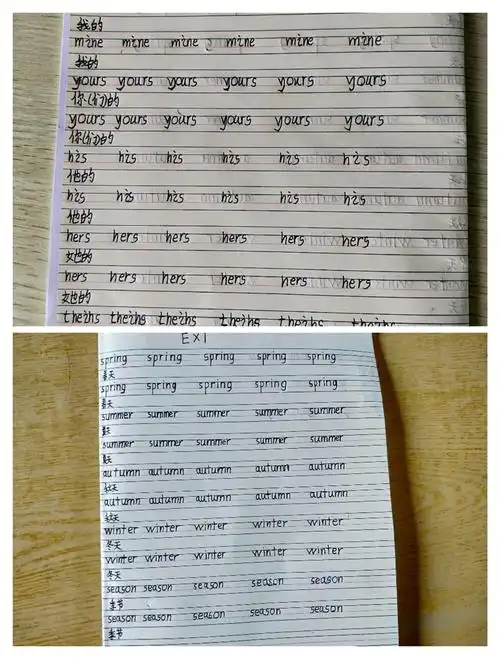 我的
mine mine mine mine mine mine
我的
yours yours yours yours yours yours
你(们)的
yours yours yours yours yours yours
你(们)的
his his his his his his
他的
his his his his his his
他的
hers hers hers hers hers hers
她的
hers hers hers hers hers hers
她的
theihs theihs theihs theihs theihs theihs
EX1
spring spring spring spring spring
春天
spring spring spring spring spring
春天
summer summer summer summer summer
夏天
summer summer summer summer summer
夏天
autumn autumn autumn autumn autumn
秋天
autumn autumn autumn autumn autumn
秋天
winter winter winter winter winter
冬天
winter winter winter winter winter
冬天
season season season season season
季节
season season season season season
季节